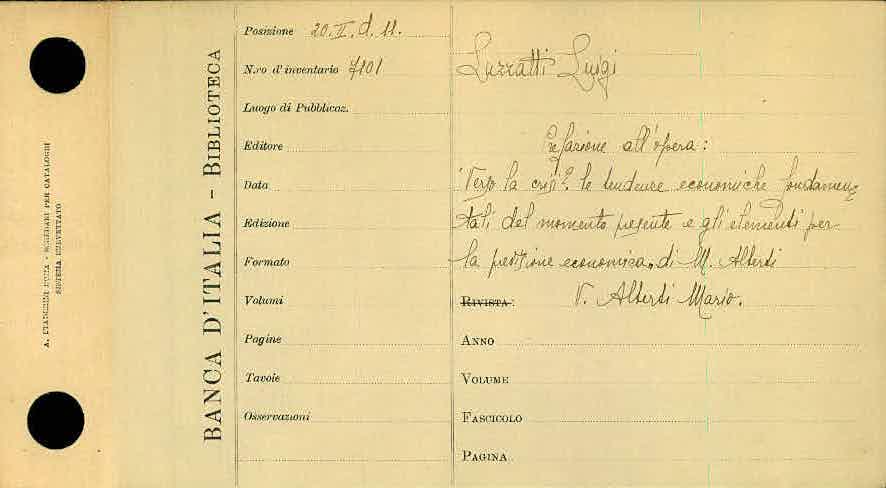 A. STADERINI ROMA - SCHEDARI PER CATALOGHI
SISTEMA BREVETTATO
BANCA D'ITALIA - BIBLIOTECA
Posizione 20.II.d.11.
N.ro d'inventario 7101
Luogo di Pubblicaz.
Editore
Data
Edizione
Formato
Volumi
Pagine
Tavole
Osservazioni
Luzzatti Luigi
Prefazione all'opera:
"Verso la crisi? le tendenze economiche fondamen=
tali del momento presente e gli elementi per
la previsione economica" di M. Alberti
RIVISTA: V. Alberti Mario.
ANNO
VOLUME
FASCICOLO
PAGINA